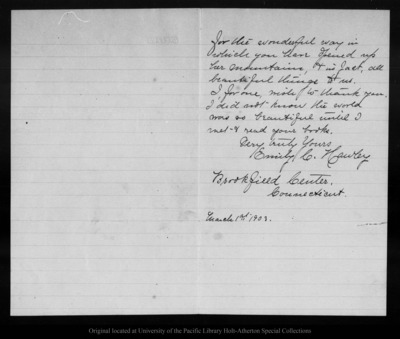 for the wonderful way in
which you have opened up
her mountains, & in fact, all
beautiful things to us.
I, for one, wish to thank you.
I did not know the world
was so beautiful until I
met & read your books.
Very truly Yours
Emily C. Hawley
Brookfield Center,
Connecticut.
March 1st 1903.
Original located at University of the Pacific Library Holt-Atherton Special Collections